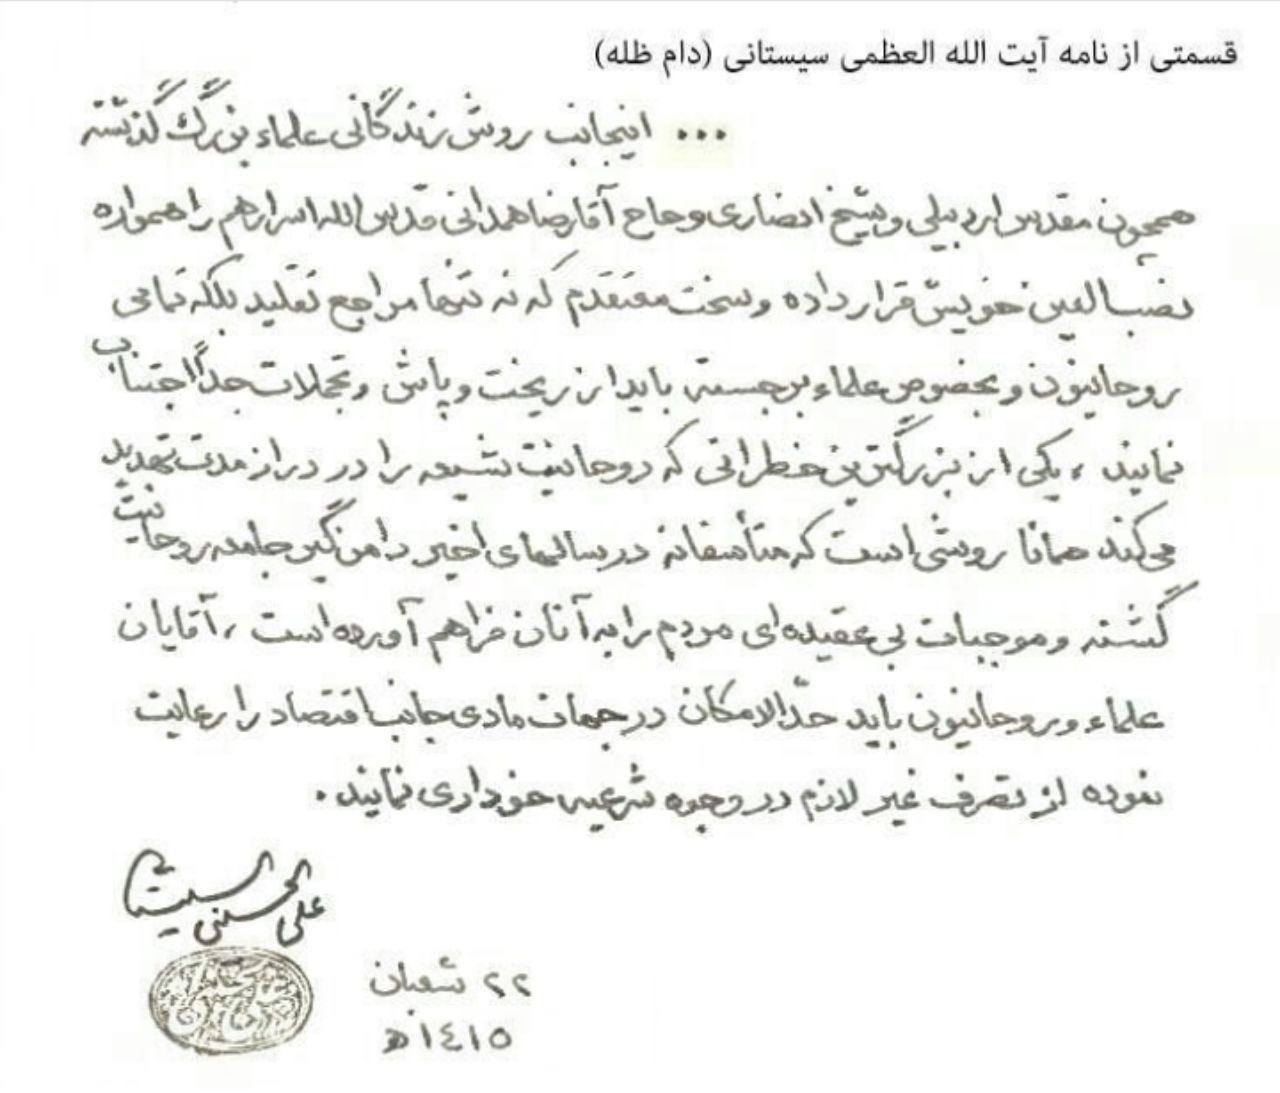 قسمتی از نامه آیت الله العظمی سیستانی (دام ظله)
... اینجانب روش زندگانی علماء بزرگ گذشته
همچون مقدس اردبیلی و شیخ انصاری و حاج آقا رضا همدانی قدس الله اسرارهم را همواره
نصب العین خویش قرار داده و سخت معتقدم که نه تنها مراجع تقلید بلکه تمامی
روحانیون و بخصوص علماء برجسته باید از ریخت و پاش و تجملات جداً اجتناب
نمایند ، یکی از بزرگترین خطراتی که روحانیت شیعه را در دراز مدت تهدید
می کند همانا روشی است که متأسفانه در سالهای اخیر دامن گیر جامعه روحانیت
گشته و موجبات بی عقیده ای مردم را به آنان فراهم آورده است ، آقایان
علماء و روحانیون باید حدّ الامکان در جهات مادی جانب اقتصاد را رعایت
نموده از تصرف غیر لازم در وجوه شرعیه خودداری نمایند .
علی الحسینی السیستانی
٢٢ شعبان
١٤١٥ هـ